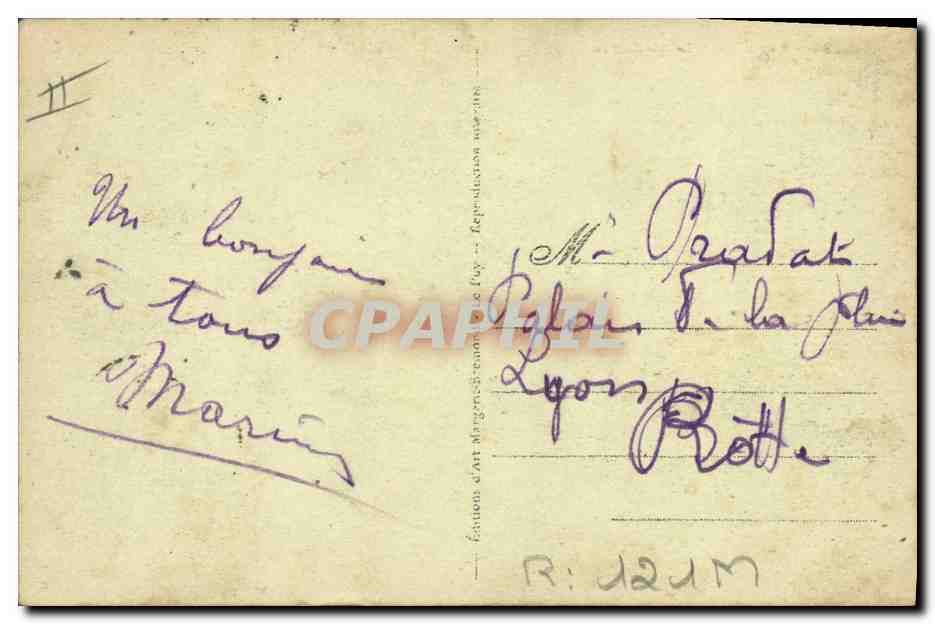 II
Un bonjour
à tous
Marius
Editions d'Art Margerit-Bremond, Le Puy — Reproduction interdite
M r Pradat
Palais de la
Lyon
Rotte
R: 121M
CPAPHIL